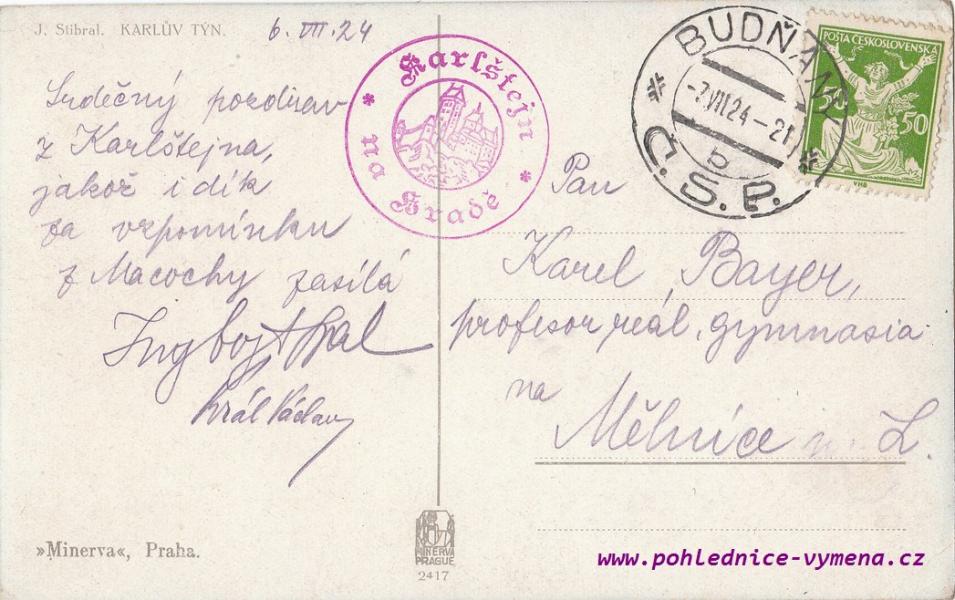 J. Stibral. KARLŮV TÝN.
6. VII. 24
Srdečný pozdrav
z Karlštejna,
jakož i dík
za vzpomínku
z Macochy zasílá
Král Václav
»Minerva«, Praha.
Karlštejn
na
Hradě
MINERVA
PRAGUE
2417
BUDŇANY
-7.VII.24-21
b
Č.S.P.
POŠTA ČESKOSLOVENSKÁ
50
50
VHB
Pan
Karel Bayer,
profesor reál. gymnasia
na
Mělníce n. L.
www.pohlednice-vymena.cz